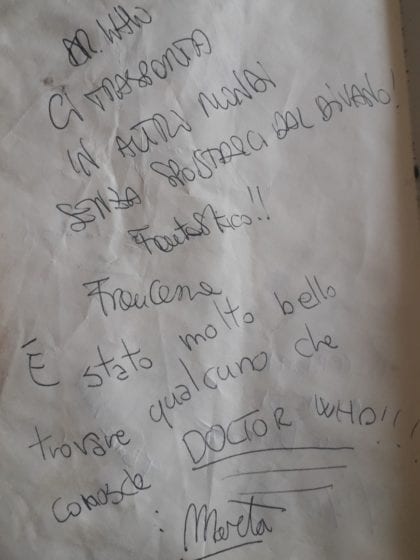 DR. WHO
CI TRASPORTA
IN ALTRI MONDI
SENZA SPOSTARCI DAL DIVANO!
Fantastico!!
Francesca
È stato molto bello
trovare qualcuno che
conosce DOCTOR WHO!!!
: Marta